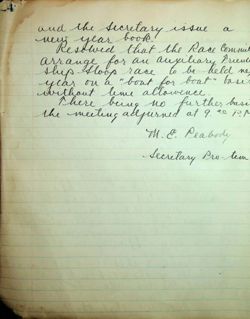 4
and the Secretary issue a
new year book.
Resolved that the Race Commit
arrange for an Auxiliary
ship Sloop race to be held ne
year on a "boat for boat" basi
without time allowence.
There being no further busi
the meeting adjurned at 9 P.M
M. E. Peabody
Secretary Pro-tem